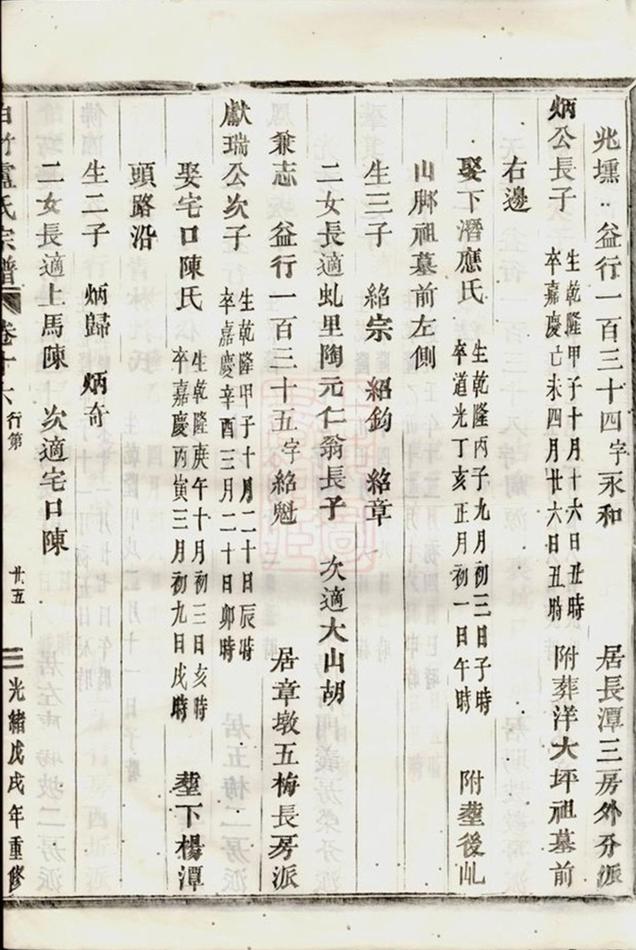 兆壎 益行一百三十四字永和 居長潭三房外分派
炳公長子 生乾隆甲子十月十六日丑時 卒嘉慶亡未四月廿六日丑時 附葬洋大坪祖墓前
右邊
娶下潛應氏 生乾隆丙子九月初三日子時 卒道光丁亥正月初一日午時 附塟後乢
山脚祖墓前左側
生三子 紹宗 紹鈞 紹章
二女長適虬里陶元仁翁長子 次適大山胡
兼志 益行一百三十五字紹魁 居章墩五梅長房派
獻瑞公次子 生乾隆甲子十月二十日辰時 卒嘉慶辛酉三月二十日卯時
娶宅口陳氏 生乾隆庚午十月初三日亥時 卒嘉慶丙寅三月初九日戌時 塟下楊潭
頭路沿
生二子 炳歸 炳奇
二女長適上馬陳 次適宅口陳
盧氏宗譜 卷十六 行第 廿五 光緒戊戌年重修